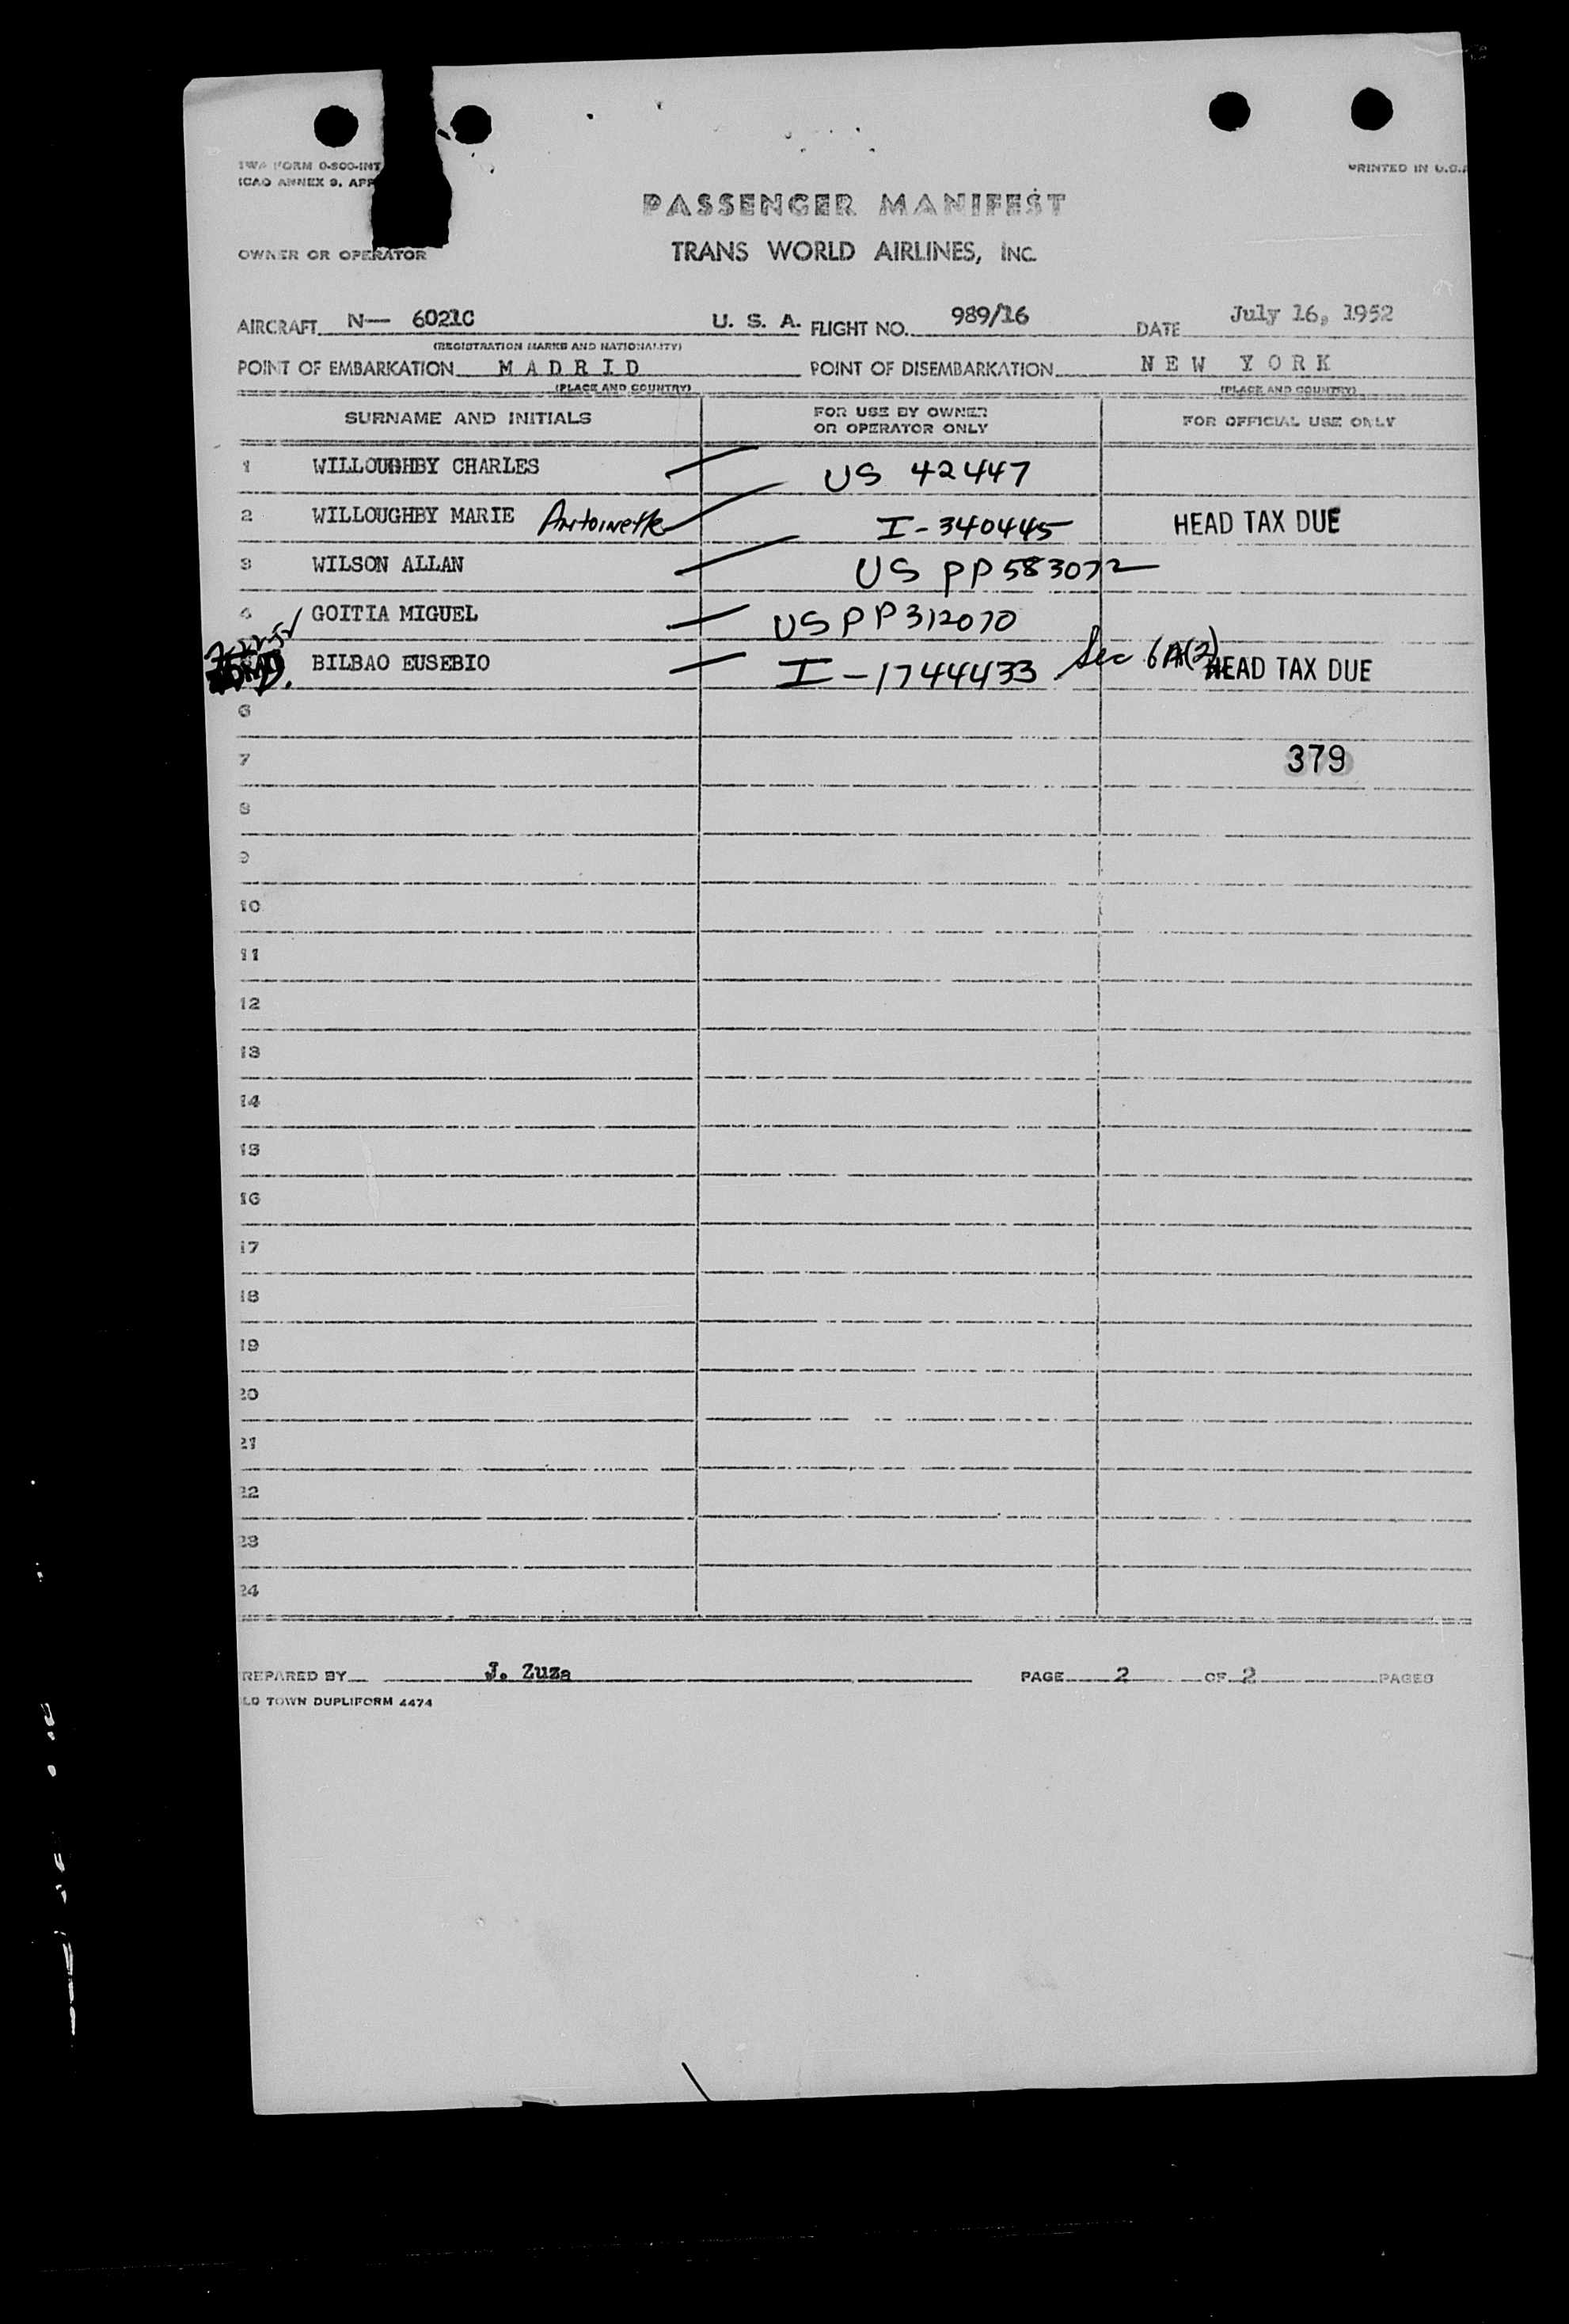 TWA FORM 0-800-INT
ICAO ANNEX 9, APP
PRINTED IN U.S.A
PASSENGER MANIFEST
OWNER OR OPERATOR TRANS WORLD AIRLINES, INC.
AIRCRAFT N— 6021C U. S. A. FLIGHT NO. 989/16 DATE July 16, 1952
(REGISTRATION MARKS AND NATIONALITY)
POINT OF EMBARKATION M A D R I D POINT OF DISEMBARKATION N E W Y O R K
(PLACE AND COUNTRY) (PLACE AND COUNTRY)
SURNAME AND INITIALS FOR USE BY OWNER OR OPERATOR ONLY FOR OFFICIAL USE ONLY
1 WILLOUGHBY CHARLES US 42447
2 WILLOUGHBY MARIE Antoinette I-340445 HEAD TAX DUE
3 WILSON ALLAN US PP 583072
4 GOITIA MIGUEL US PP 312070
BILBAO EUSEBIO I-1744433 Sec 6A(3) HEAD TAX DUE
6
7 379
8
9
10
11
12
13
14
15
16
17
18
19
20
21
22
23
24
REPARED BY J. Zuza PAGE 2 OF 2 PAGES
LD TOWN DUPLIFORM 4474